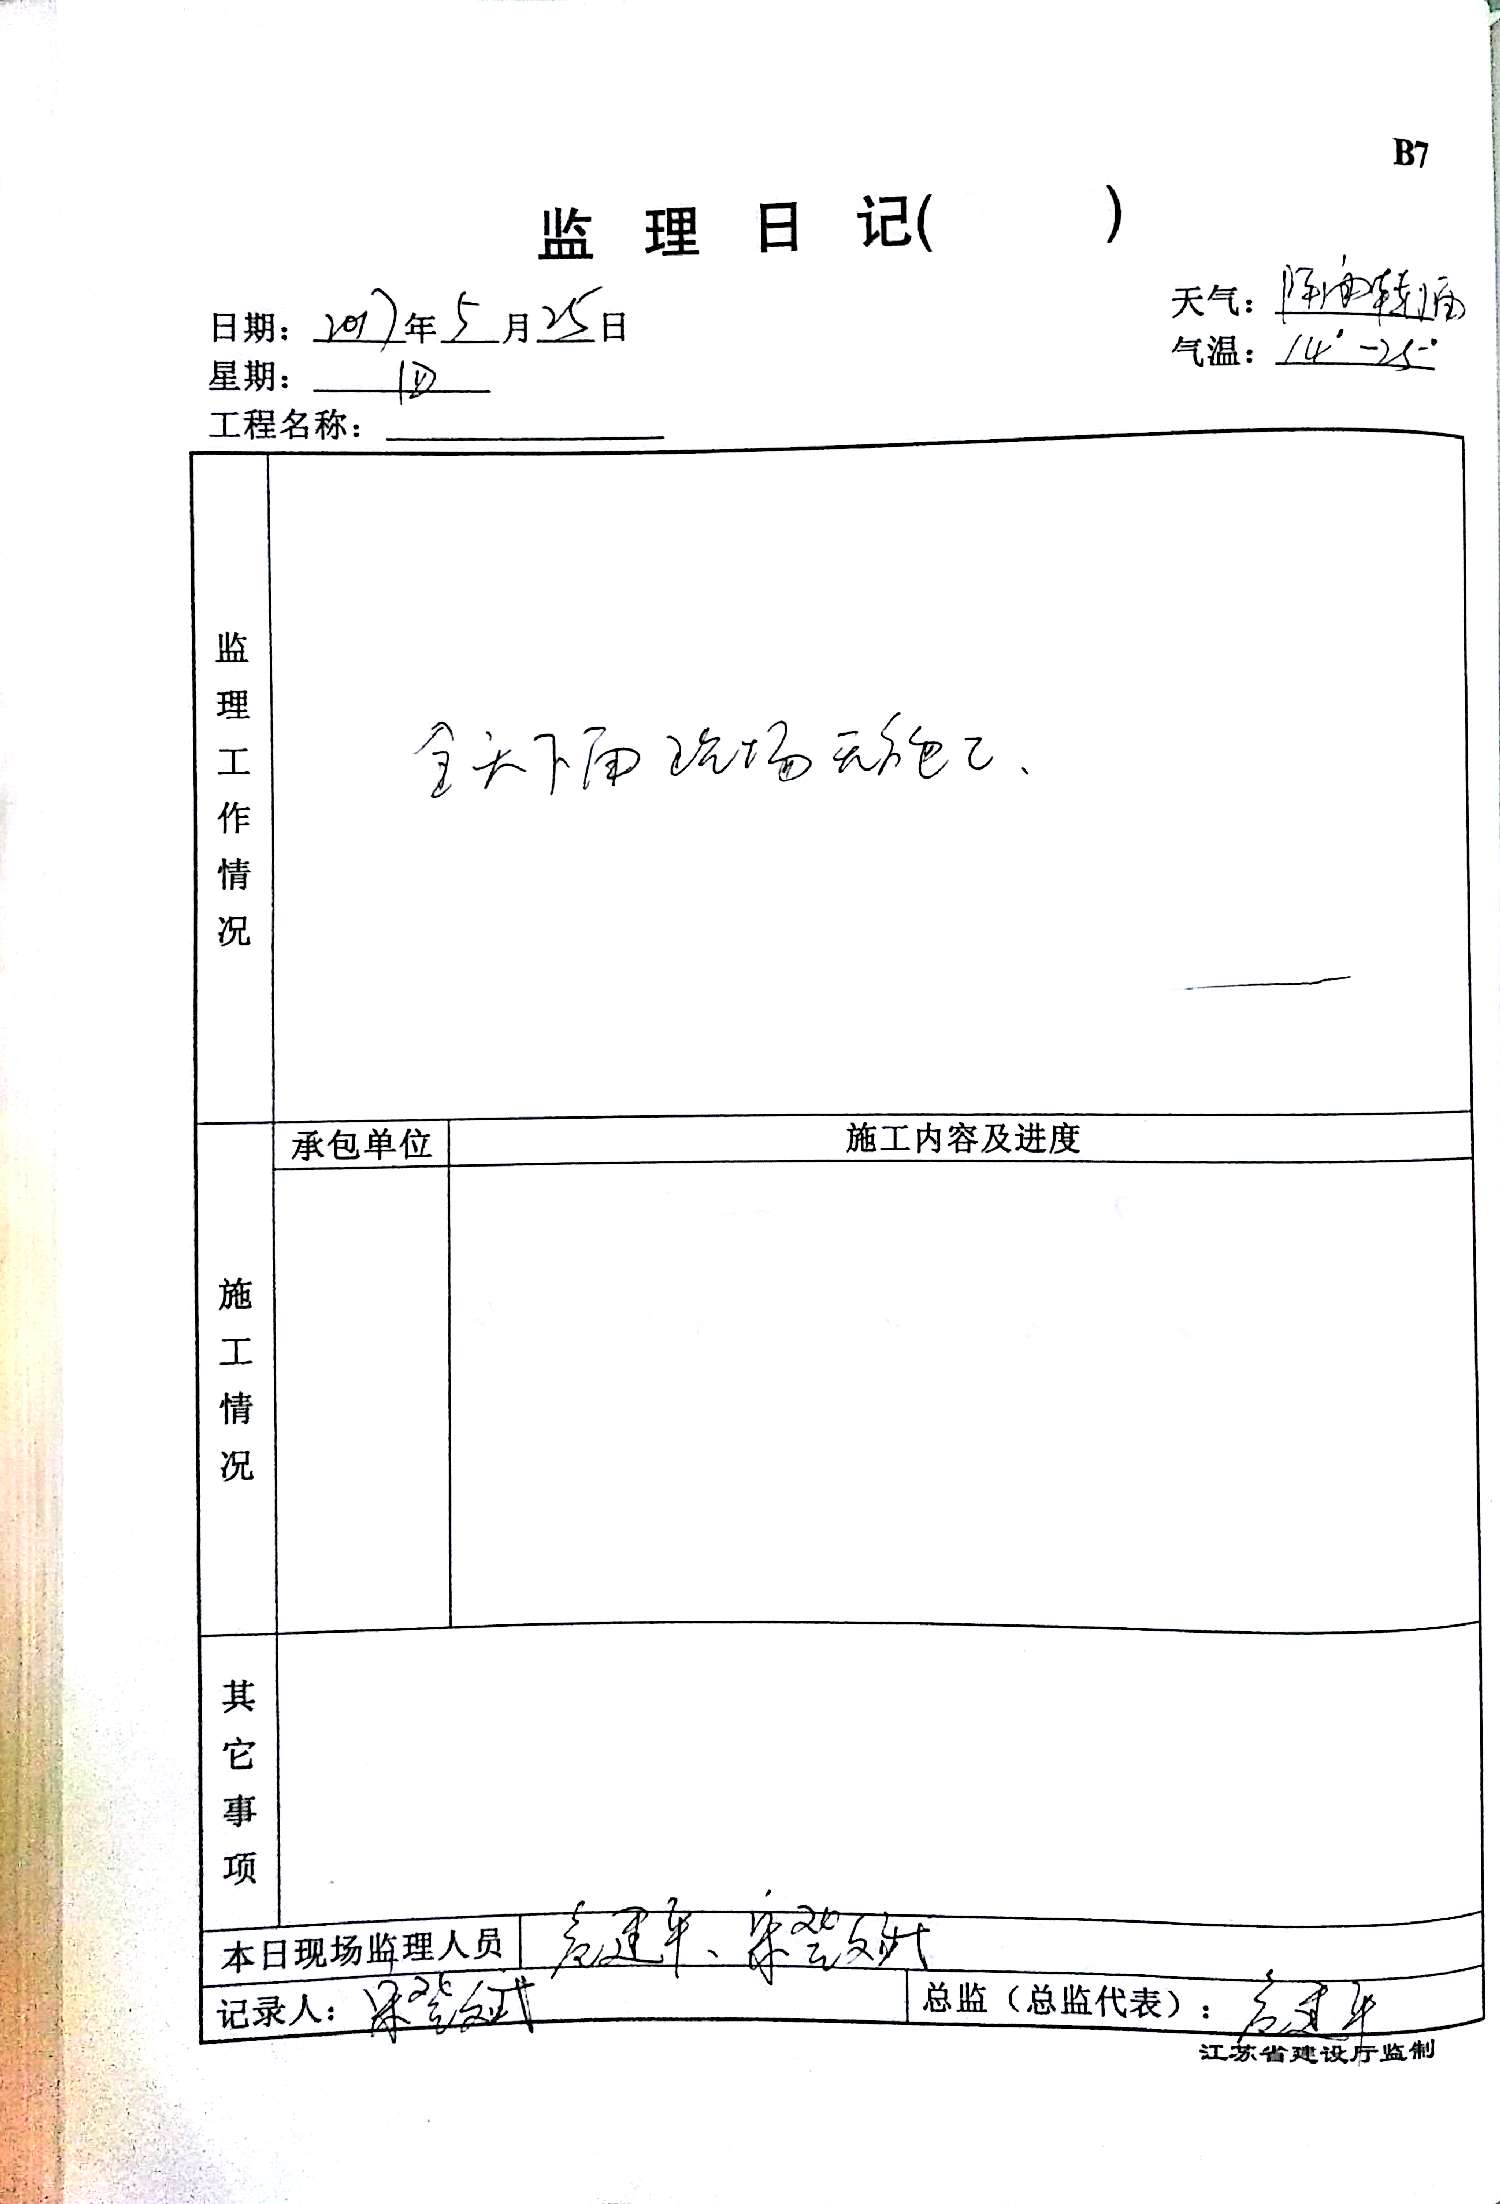 B7
监理日记(        )
日期：2017年5月25日
天气：阵雨转
星期：四
气温：14°-25°
工程名称：
监理工作情况
全天下雨现场无施工、
施工情况
承包单位
施工内容及进度
其它事项
本日现场监理人员
建平、宋
记录人：宋
总监（总监代表）：建平
江苏省建设厅监制